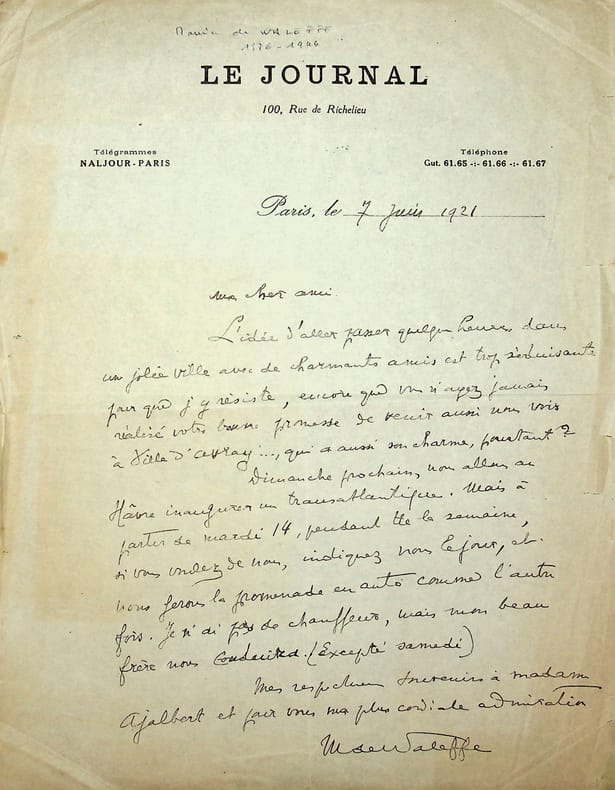 Maurice de WALEFFE
1876-1946
LE JOURNAL
100, Rue de Richelieu
Télégrammes
NALJOUR-PARIS
Téléphone
Gut. 61.65 -:- 61.66 -:- 61.67
Paris, le 7 Juin 1921
Mon cher ami
L'idée d'aller passer quelques heures dans
une jolie ville avec de charmants amis est trop séduisante
pour que j'y résiste, encore que vous n'ayez jamais
réalisé votre bonne promesse de venir aussi nous voir
à Ville d'Avray..., qui a aussi son charme, pourtant ?
Dimanche prochain, nous allons au
Hâvre inaugurer un transatlantique. Mais à
partir de mardi 14, pendant tte la semaine,
si vous voulez de nous, indiquez nous le jour, et
nous ferons la promenade en auto comme l'autre
fois. Je n'ai pas de chauffeur, mais mon beau
frère nous conduira. (Excepté samedi)
Mes respectueux souvenirs à madame
Ajalbert et pour vous ma plus cordiale admiration
M de Waleffe